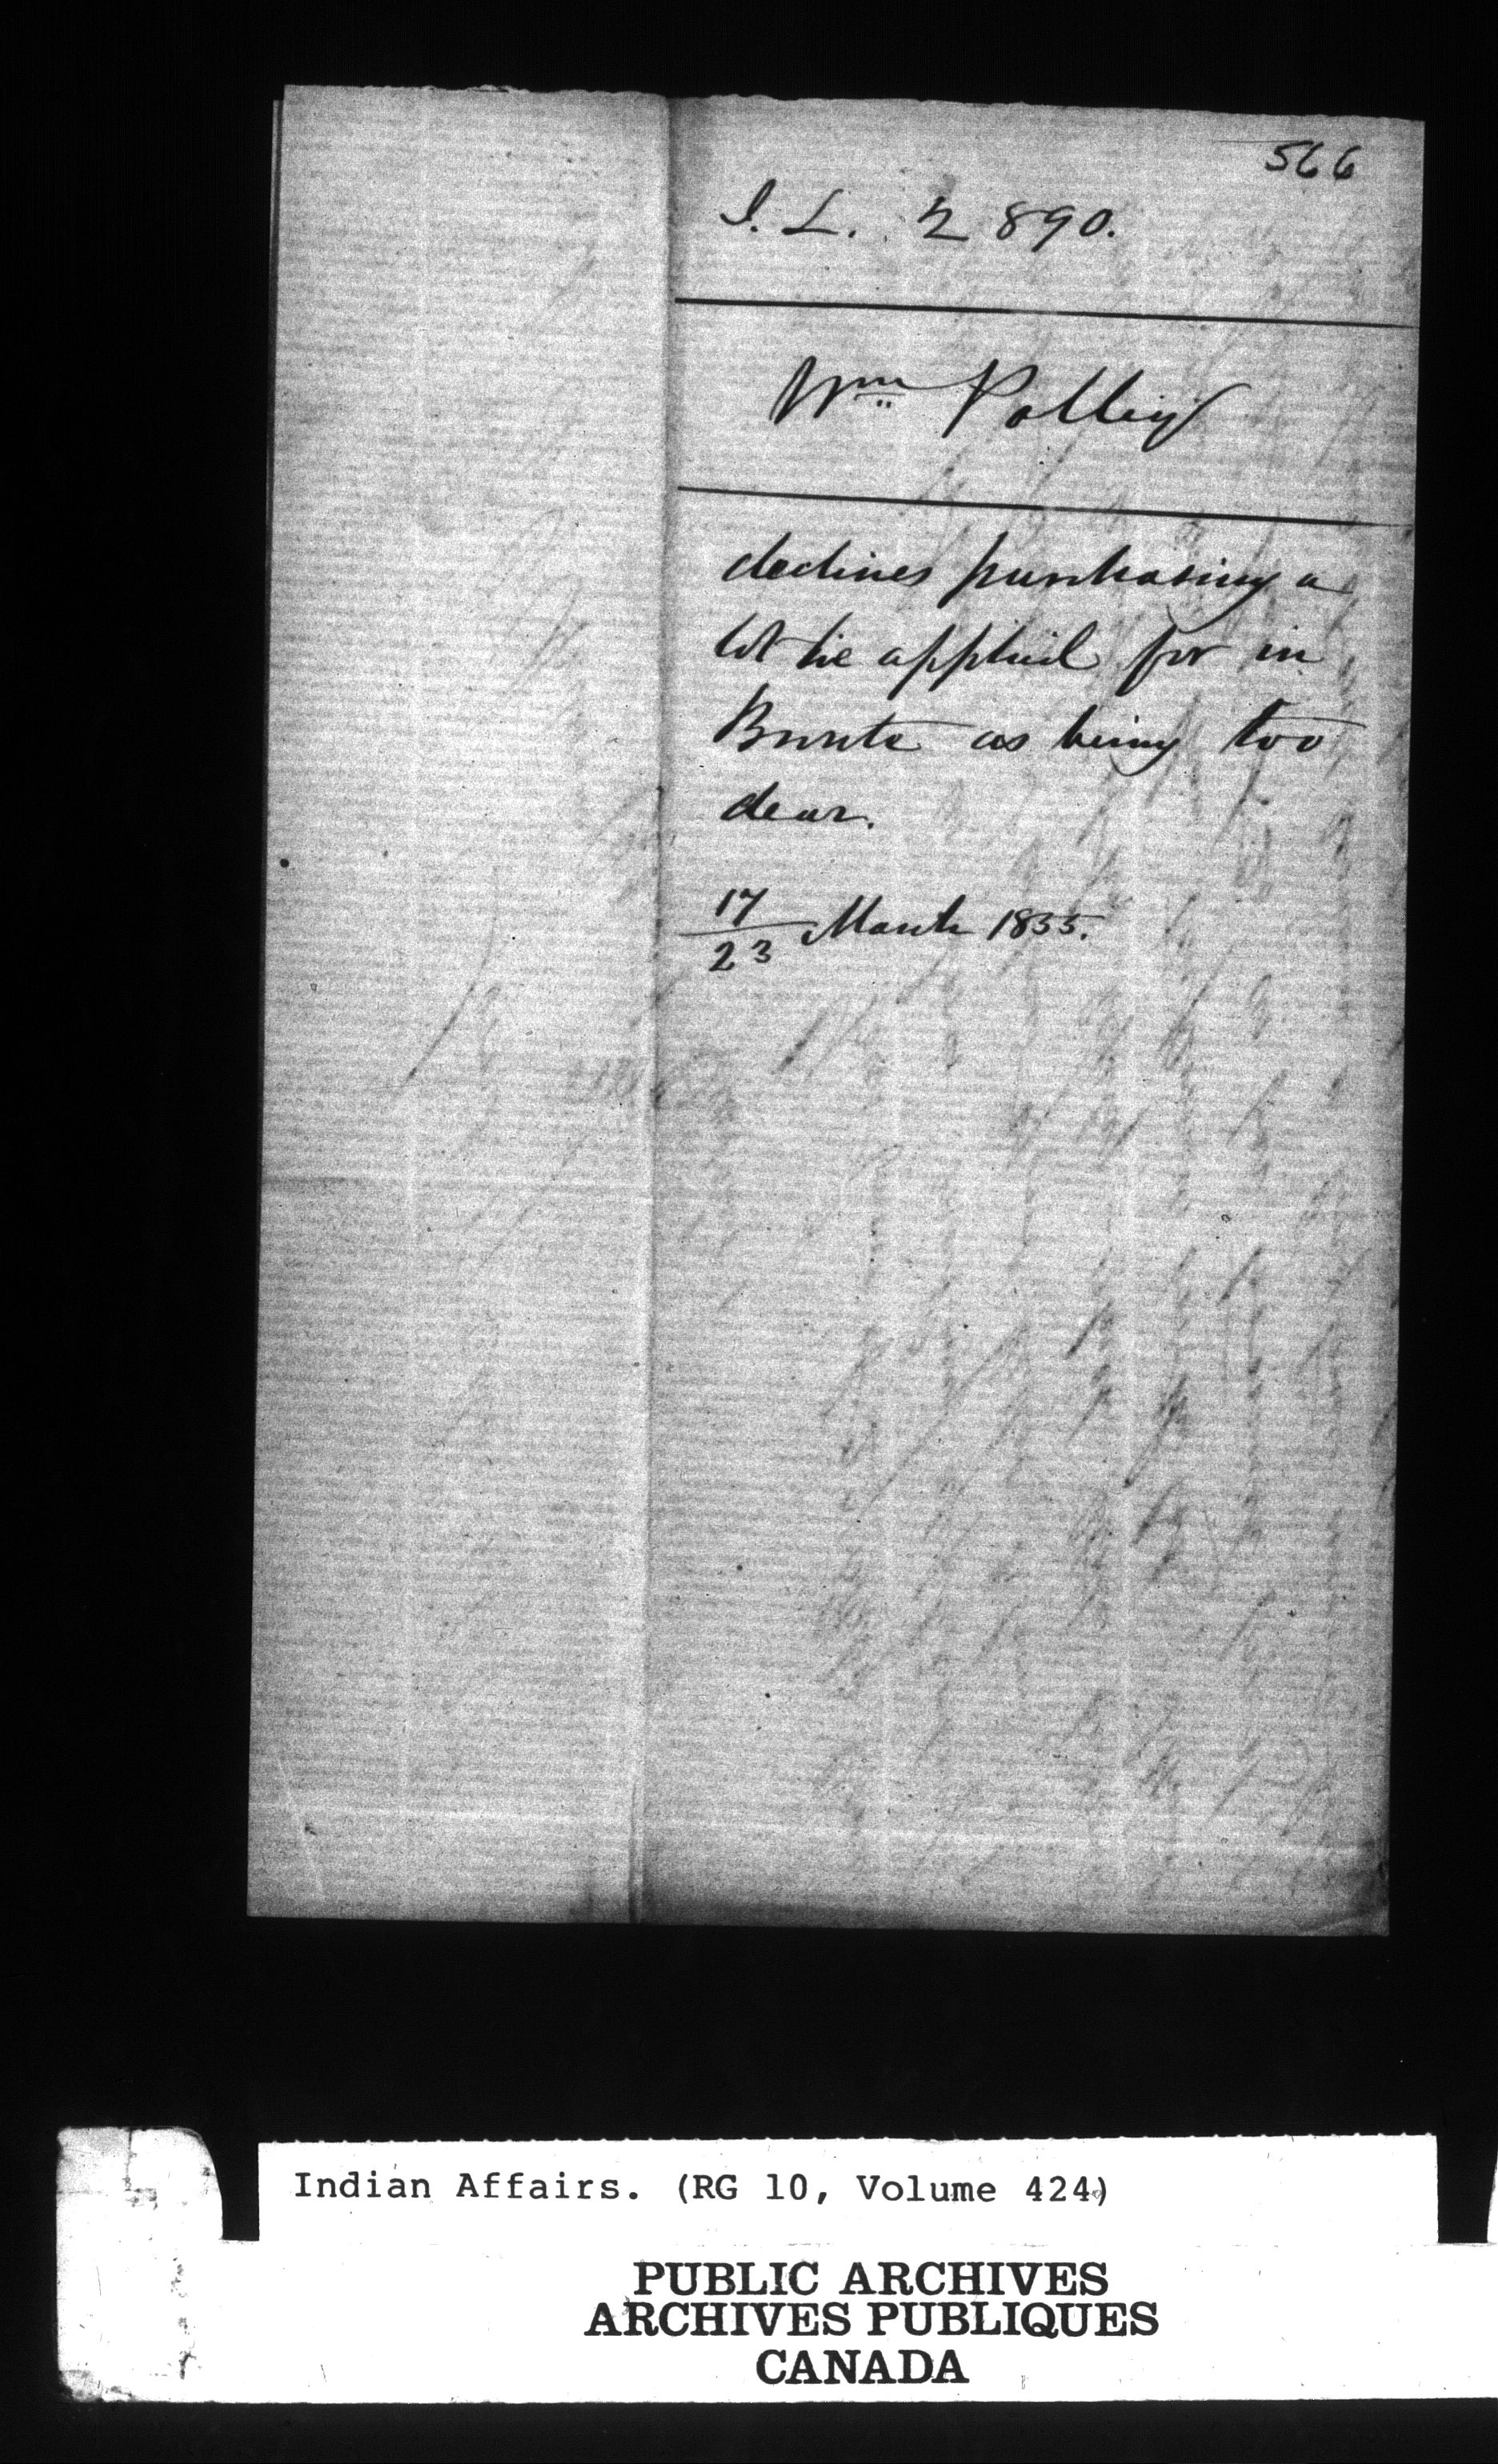 566
I. L. 2890.
Wm Polley
declines purchasing a
lot he applied for in
Bronte as being too
dear.
17/23 March 1855.
Indian Affairs. (RG 10, Volume 424)
PUBLIC ARCHIVES
ARCHIVES PUBLIQUES
CANADA